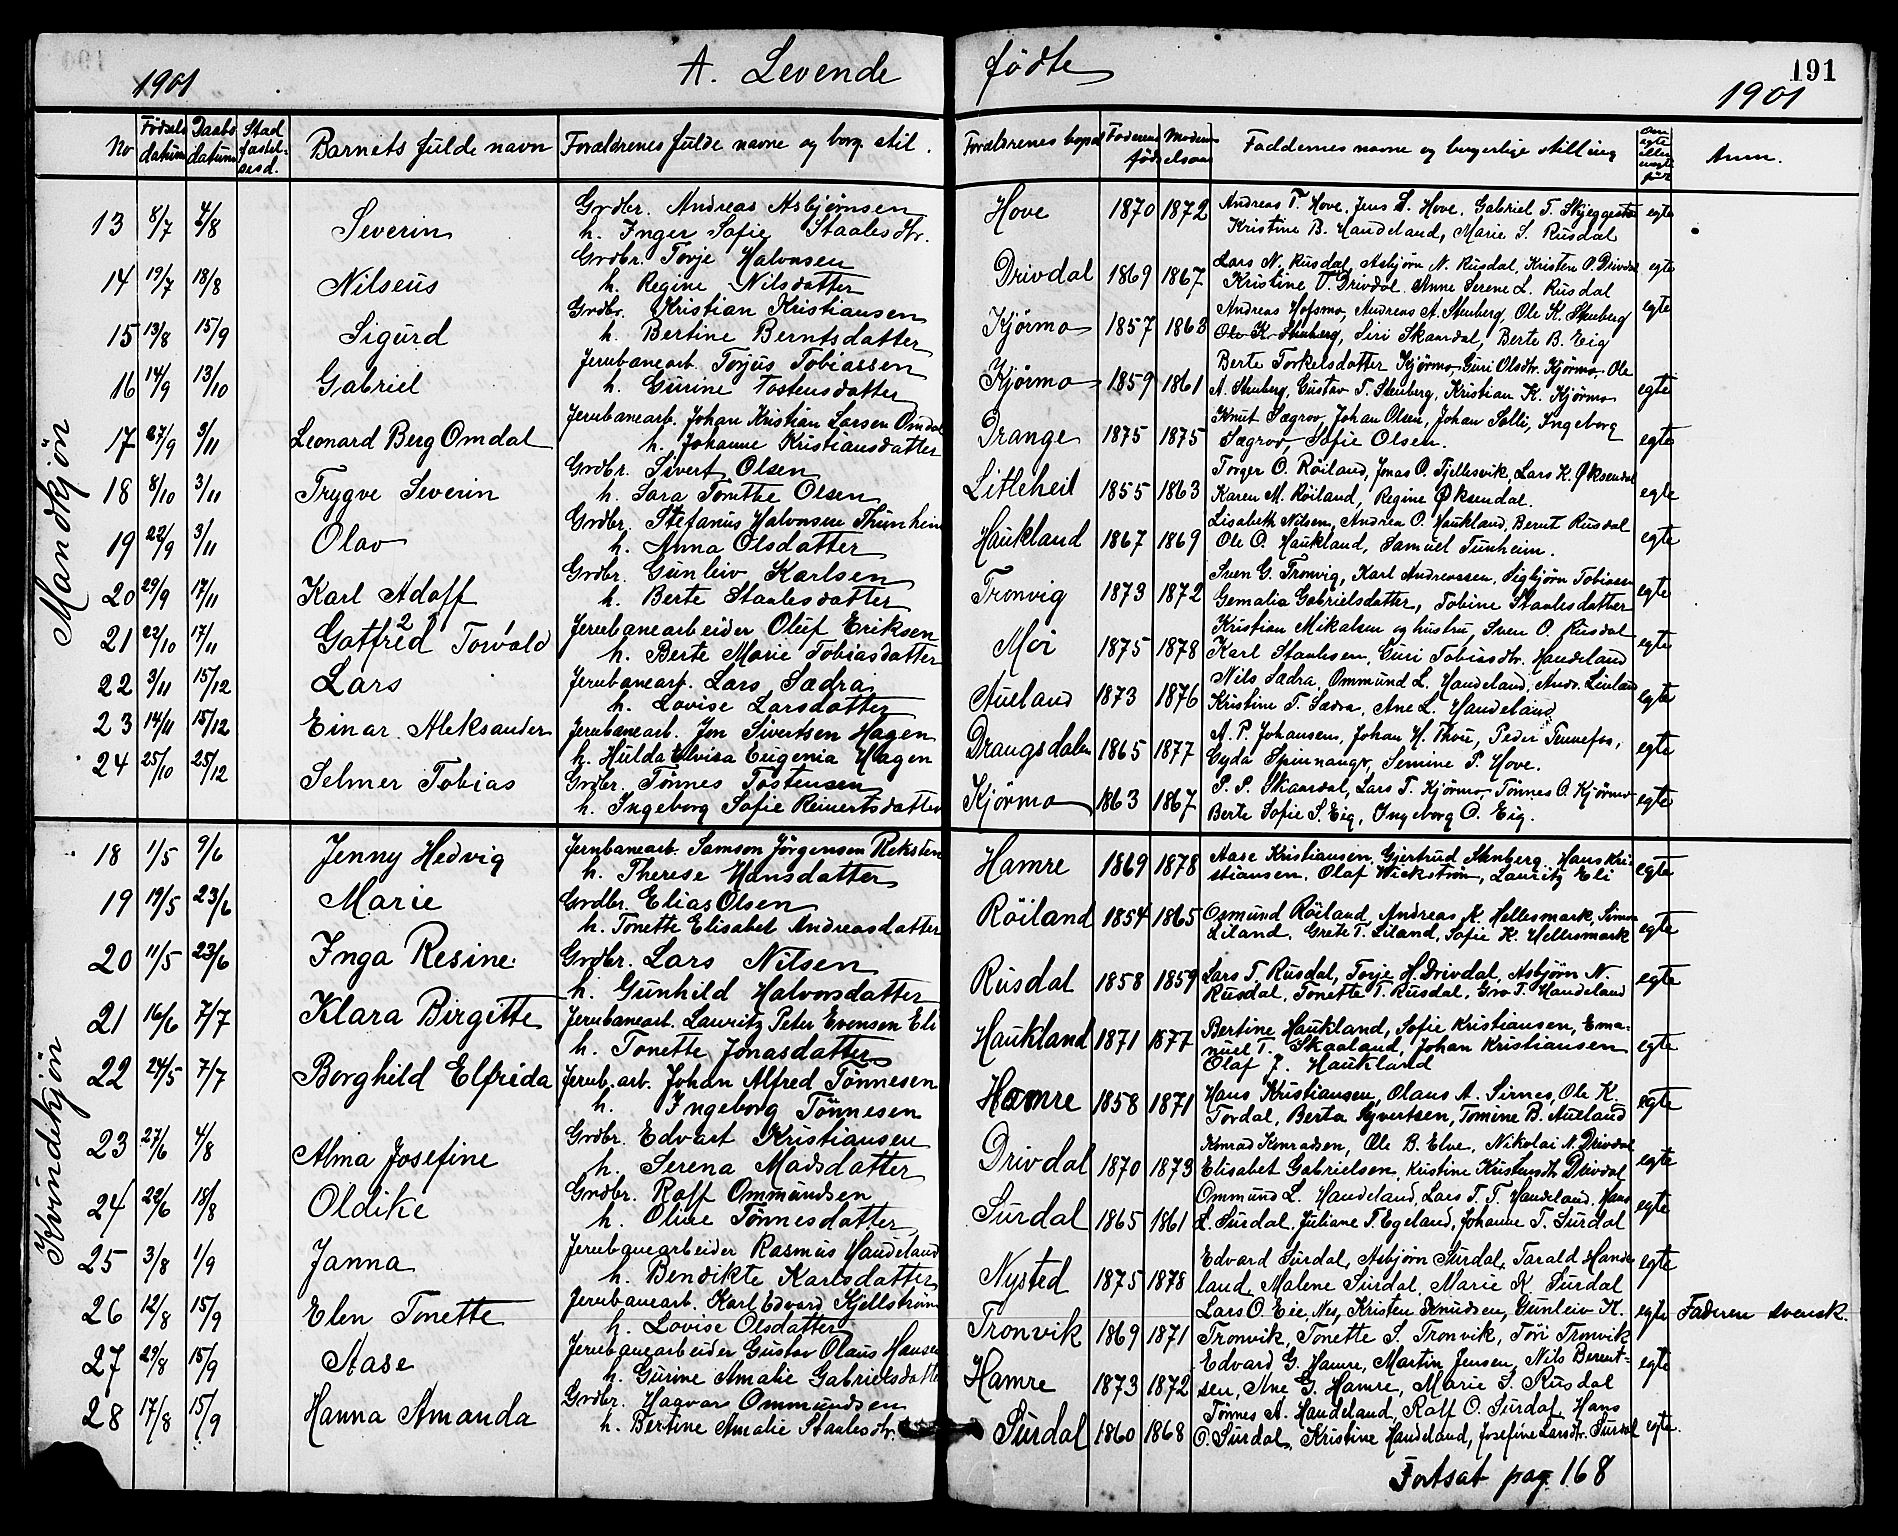 1901 A. Levende fødte 191
1901
No Fødsels datum Daabs datum Stadfæstelsesd. Barnets fulde navn Forældrenes fulde navne og borg. stil. Forældrenes bopæl Faderens Moderens fødselsaar Faddernes navne og borgerlige stilling Om egte eller uegte født Anm.
Mandkjøn
13 8/7 4/8 Severin Grdbr. Andreas Asbjørnsen Hove 1870 1872 Andreas T. Hove, Jens S. Hove, Gabriel T. Skjeggestad egte
h. Inger Sofie Staalesdtr. Kristine B. Handeland, Marie S. Rusdal
14 19/7 18/8 Nilseus Grdbr. Torje Halvorsen Drivdal 1869 1867 Lars N. Rusdal, Asbjørn N. Rusdal, Kristen O. Drivdal egte
h. Regine Nilsdatter Kristine T. Drivdal. Anne Serene L. Rusdal
15 13/8 15/9 Sigurd Grdbr. Kristian Kristiansen Kjørmo 1857 1863 Andreas Hofsmo, Andreas A. Stenberg, Ole K. Stenberg egte
h. Bertine Berntsdatter Ole K. Stenberg, Siri Skaardal, Berte B. Eig
16 14/9 13/10 Gabriel Jernbanearb. Torjus Tobiassen Kjørmo 1859 1861 Berte Torkelsdatter Kjørmo, Guri Olsdtr. Kjørmo, Ole egte
h. Gurine Tostensdatter A. Stenberg, Gustav T. Stenberg, Kristian K. Kjørmo
17 27/9 3/11 Leonard Berg Omdal Jernbanearb. Johan Kristian Larsen Omdal Drange 1875 1875 Knut Sægrov, Johan Olsen, Johan Solli, Ingeborg egte
h. Johanne Kristiansdatter Sægrov, Sofie Olsen.
18 8/10 3/11 Trygve Severin Grdbr. Sivert Olsen Litleheil 1855 1863 Torger O. Røiland, Jonas O. Tjellesvik, Lars K. Øksendal egte
h. Sara Tomthe Olsen Karen M. Røiland, Regine Øksendal.
19 22/9 3/11 Olav Grdbr. Stefanus Halvorsen Thunheim Haukland 1867 1869 Lisabeth Nilsen, Andrea O. Haukland, Bernt Rusdal egte
h. Anna Olsdatter Ole O. Haukland, Samuel Tunheim.
20 29/9 17/11 Karl Adolf Grdbr. Gunleiv Karlsen Tronvig 1873 1872 Sven G. Tronvig, Karl Andreassen, Sigbjørn Tobiassen egte
h. Berte Staalesdatter Gemalia Gabrielsdatter, Tobine Staalesdatter
21 22/10 17/11 Gotfred Torvald Jernbanearbeider Oluf Eriksen Moi 1875 1878 Kristian Mikalsen og hustru, Sven O. Rusdal egte
h. Berte Marie Tobiasdatter Karl Staalesen, Guri Tobiasdtr. Handeland
22 3/11 15/12 Lars Jernbanearb. Lars Sædra Aueland 1873 1876 Nils Sædra, Ommund L. Handeland, Andr. Linland egte
h. Lovise Larsdatter Kristine T. Sædra, Ane L. Handeland
23 14/11 15/12 Einar Aleksander Jernbanearb. Jon Sivertsen Hagen Drangsdalen 1865 1877 A. P. Johansen, Johan H. Thou, Peder Tennefos, egte
h. Hulda Elvisa Eugenia Hagen Gyda Spinnangr, Semine P. Hove.
24 25/10 25/12 Selmer Tobias Grdbr. Tønnes Tostensen Kjørmo 1863 1867 P. P. Skaardal, Lars T. Kjørmo, Tønnes O. Kjørmo egte
h. Ingeborg Sofie Reinertsdatter Berte Sofie S. Eig, Ingeborg O. Eig.
Kvindekjøn
18 1/5 9/6 Jenny Hedvig Jernbanearb. Samson Jørgensen Reksten Hamre 1869 1878 Aase Kristiansen, Gjertrud Stenberg, Hans Kri- egte
h. Therese Hansdatter stiansen, Olaf Wickstrøm, Lauritz Eli
19 19/5 23/6 Marie Grdbr. Elias Olsen Røiland 1854 1865 Osmund Røiland, Andreas K. Hellesmark, Simon egte
h. Tonette Elisabet Andreasdatter Liland, Grete T. Liland, Sofie K. Hellesmark
20 11/5 23/6 Inga Resine Grdbr. Lars Nilsen Rusdal 1858 1859 Lars T. Rusdal, Torje H. Drivdal, Asbjørn N. egte
h. Gunhild Halvorsdatter Rusdal, Tonette T. Rusdal, Gro T. Handeland
21 16/6 7/7 Klara Birgitte Jernbanearb. Lauritz Peter Evensen Eli Haukland 1871 1877 Bertine Haukland, Sofie Kristiansen, Ema- egte
h. Tonette Jonasdatter nuel T. Skaaland, Johan Kristiansen
Olaf J. Haukland
22 24/5 7/7 Borghild Elfrida Jernb. arb. Johan Alfred Tønnesen Hamre 1858 1871 Hans Kristiansen, Olaus A. Sirnes, Ole K. egte
h. Ingeborg Tønnesen Tordal, Berta Syvertsen, Tomine B. Aueland
23 27/6 4/8 Alma Josefine Grdbr. Edvart Kristiansen Drivdal 1870 1873 Konrad Konradsen, Ole B. Elve, Nikolai N. Drivdal egte
h. Serena Madsdatter Elisabet Gabrielsen, Kristine Kristensdtr. Drivdal
24 22/6 18/8 Oldike Grdbr. Rolf Ommundsen Surdal 1865 1861 Ommund L. Handeland, Lars T. T. Handeland, Hans egte
h. Oline Tønnesdatter L. Surdal, Juliane T. Egeland, Johanne T. Surdal
25 3/8 1/9 Janna Jernbanearbeider Rasmus Handeland Nysted 1875 1878 Edvard Surdal, Asbjørn Surdal, Tarald Hande- egte
h. Bendikte Karlsdatter land, Malene Surdal, Marie K. Surdal
26 12/8 15/9 Elen Tonette Jernbanearb. Karl Edvard Kjellstrøm Tronvik 1869 1871 Lars O. Eie, Nes, Kristen Knudsen, Gunleiv K. egte Faderen svensk.
h. Lovise Olsdatter Tronvik, Tonette S. Tronvik, Tori Tronvik
27 29/8 15/9 Aase Jernbanearbeider Gustav Olaus Hansen Hamre 1873 1872 Edvard G. Hamre, Martin Jensen, Nils Bernt- egte
h. Gurine Amalie Gabrielsdatter sen, Ane G. Hamre, Marie S. Rusdal
28 17/8 15/9 Hanna Amanda Grdbr. Haavar Ommundsen Surdal 1860 1868 Tønnes A. Handeland, Rolf O. Surdal, Hans egte.
h. Bertine Amalie Staalesdtr. O. Surdal, Kristine Handeland, Josefine Larsdtr. Surdal
Fortsat pag. 168